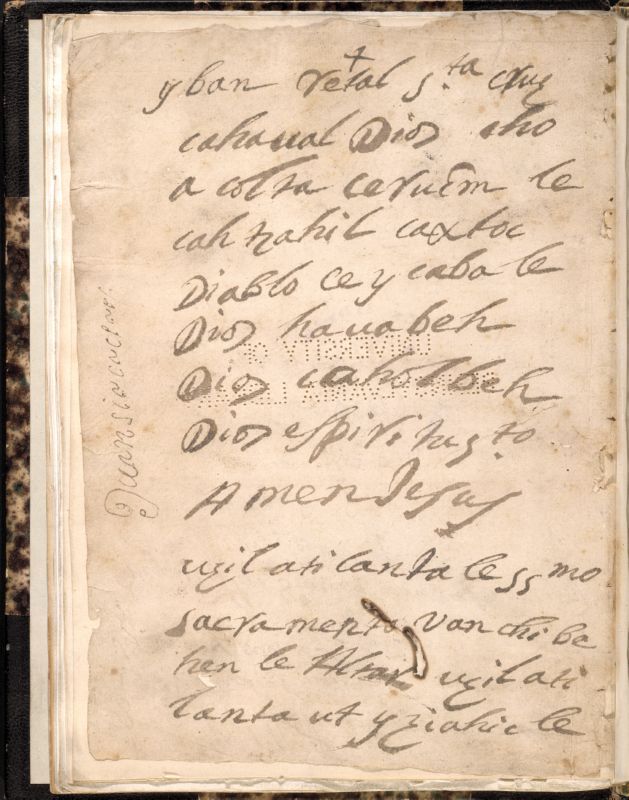 y ban retal s.ta cruz
cahaual Dios cho
a colta ceruem le
cah nahil caxtoc
Diablo ce y caba le
Dios hauabeh
Dios caholbeh
Dios espiritu s.to
Amen Jesus
ugil ati lanta le ss mo
sacramento van chi ba
hen le Altar ugil ati
lanta ut y ziahic le